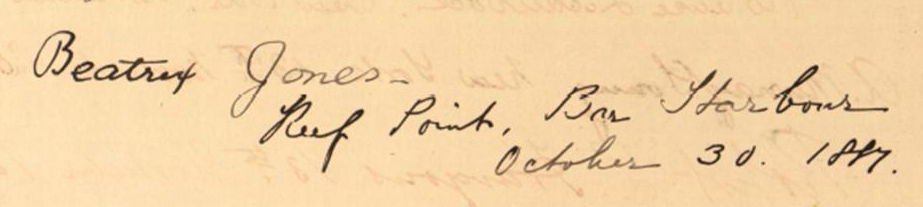 Beatrix Jones-
Reef Point, Bar Harbour
October 30. 1887.